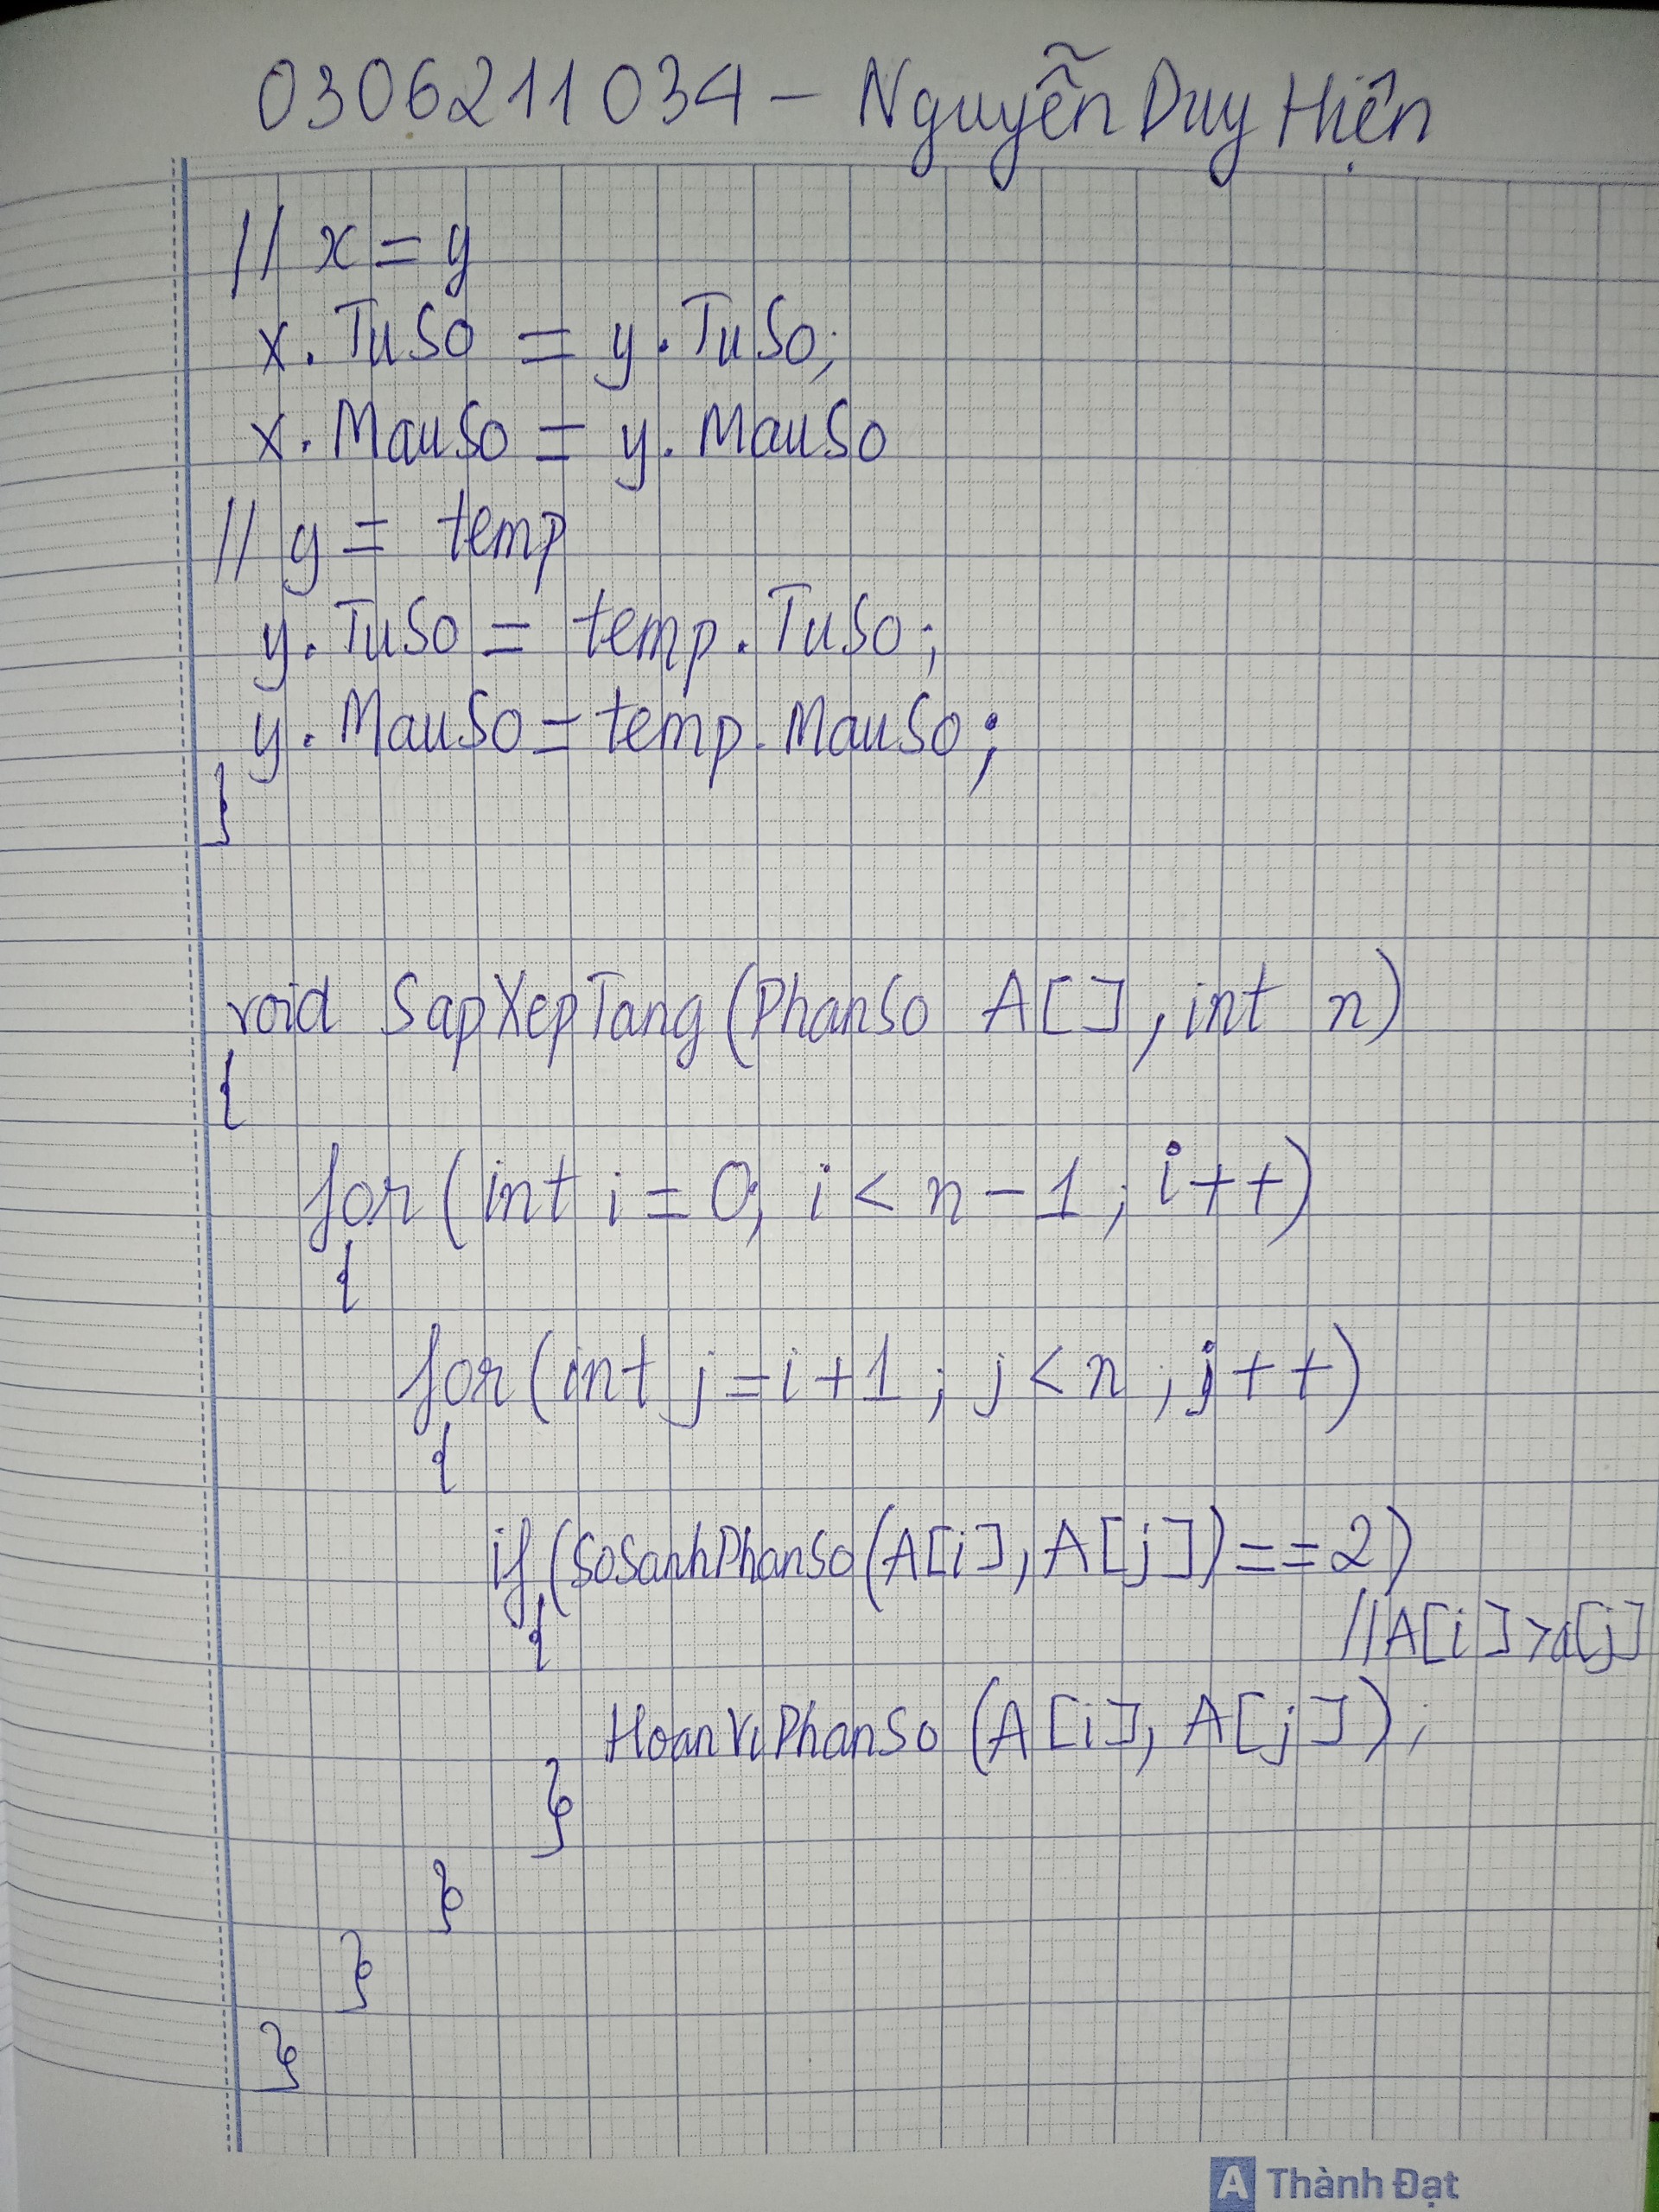 0306211034 - Nguyễn Duy Hiện
// x = y
x. TuSo = y. TuSo;
x. MauSo = y. MauSo
// y = temp
y. TuSo = temp. TuSo;
y. MauSo = temp. MauSo;
}
void SapXepTang (PhanSo A[], int n)
{
for (int i = 0; i < n - 1; i++)
{
for (int j = i + 1; j < n; j++)
{
if (SoSanhPhanSo (A[i], A[j]) == 2)
{ //A[i] > a[j]
HoanViPhanSo (A[i], A[j]);
}
}
}
}
A Thành Đạt